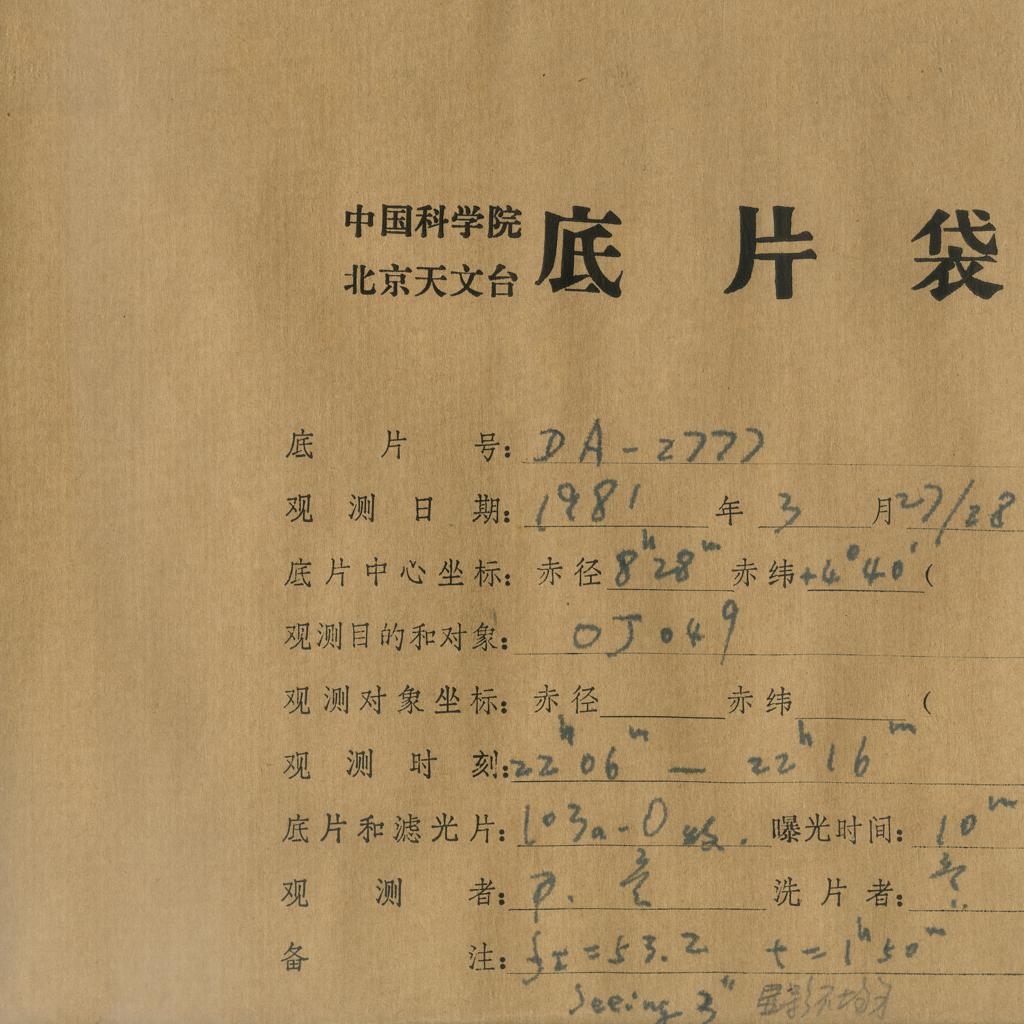 中国科学院
北京天文台 底片袋
底片号: DA-2777
观测日期: 1981年3月27/28
底片中心坐标: 赤径8h28m赤纬+4°40′(
观测目的和对象: OJ049
观测对象坐标: 赤径 赤纬 (
观测时刻: 22h06m — 22h16m
底片和滤光片: 103a-O 曝光时间: 10m
观测者: 洗片者:
备注: =53.2 t=1h50m
Seeing 3″